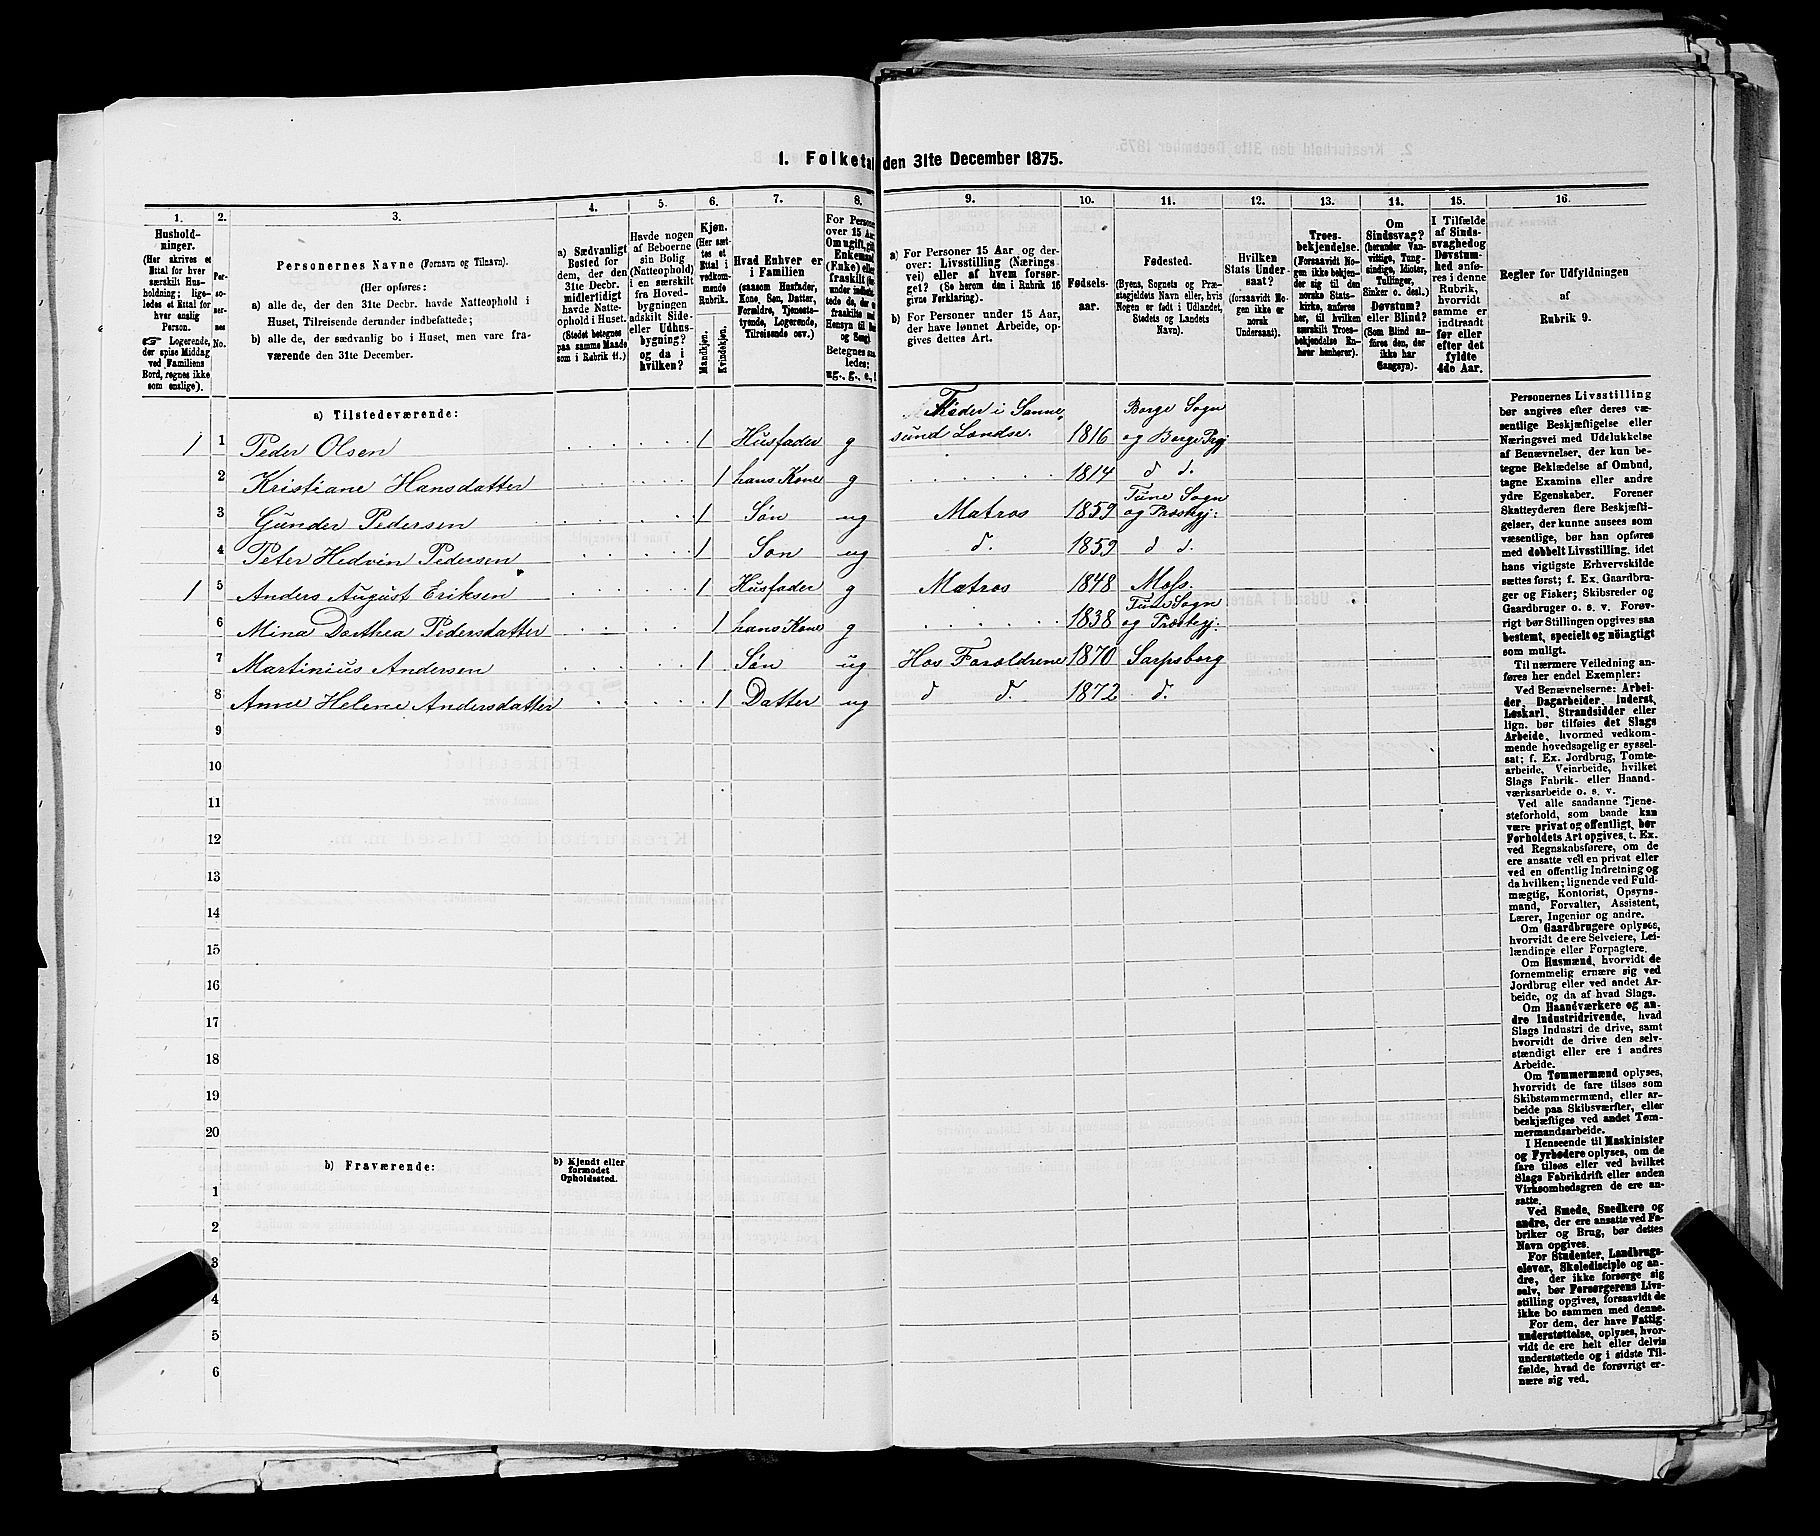 1. Folketal den 31te December 1875.
1.
2.
3.
4.
5.
6.
7.
8.
9.
10.
11.
12.
13.
14.
15.
16.
Hushold-
ninger.
(Her skrives et
Ettal for hver
særskilt Hus-
holdning; lige-
ledes et Ettal for
hver enslig
Person.
☞ Logerende,
der spise Middag
ved Familiens
Bord, regnes ikke
som enslige).
Per-
so-
ner-
nes
No.
Personernes Navne (Fornavn og Tilnavn).
(Her opføres:
a) alle de, der den 31te Decbr. havde Natteophold i
Huset, Tilreisende derunder indbefattede;
b) alle de, der sædvanlig bo i Huset, men vare fra-
værende den 31te December.
a) Sædvanligt
Bosted for
dem, der den
31te Decbr.
midlertidigt
havde Natte-
ophold i Huset.
(Stedet betegnes
paa samme Maade
som i Rubrik 11.)
Havde nogen
af Beboerne
sin Bolig
(Natteophold)
i en særskilt
fra Hoved-
bygningen
adskilt Side-
eller Udhus-
bygning?
og da i
hvilken?
Kjøn.
(Her sæt-
tes et
Ettal i
vedkom-
mende
Rubrik.
Mandkjøn.
Kvindekjøn.
Hvad Enhver er
i Familien
(saasom Husfader,
Kone, Søn, Datter,
Forældre, Tjeneste-
tyende, Logerende,
Tilreisende osv.)
For Personer
over 15 Aar:
Om ugift, gift,
Enkemand
(Enke) eller
fraskilt
a) For Personer 15 Aar og der-
over: Livsstilling (Nærings-
vei) eller af hvem forsør-
get? (Se herom den i Rubrik 16
givne Forklaring).
b) For Personer under 15 Aar,
der have lønnet Arbeide, op-
gives dettes Art.
Fødsels-
aar.
Fødested.
(Byens, Sognets og Præ-
stegjeldets Navn eller, hvis
Nogen er født i Udlandet,
Stedets og Landets
Navn).
Hvilken
Stats Under-
saat?
(forsaavidt No-
gen ikke er
norsk
Undersaat).
Troes-
bekjendelse.
(Forsaavidt No-
gen ikke bekjen-
der sig til den
norske Stats-
kirke, anføres
her, til hvilken
særskilt Troes-
bekjendelse En-
hver henhører).
Om
Sindssvag?
(herunder Van-
vittige, Tung-
sindige, Idioter,
Tullinger,
Sinker o. desl.)
Døvstum?
eller Blind?
(Som Blind an-
føres den, der
ikke har
Gangsyn).
I Tilfælde
af Sinds-
svaghed og
Døvstum-
hed anfø-
res i denne
Rubrik,
hvorvidt
samme er
indtraadt
før eller
efter det
fyldte
4de Aar.
Regler for Udfyldningen
af
Rubrik 9.
a) Tilstedeværende:
1 1 Peder Olsen 1 Husfader g Fløder i Sanne- sund Lændse. 1816 Borge Sogn og Borge Prgj
2 Kristiane Hansdatter 1 hans Kone g 1814 d d.
3 Gunder Pedersen 1 Søn ug Matros 1859 Tune Sogn og Præstegj:
4 Peter Hedvin Pedersen 1 Søn ug d. 1859 d d.
1 5 Anders August Eriksen 1 Husfader g Matros 1848 Moss.
6 Mina Dorthea Pedersdatter 1 hans Kone g 1838 Tune Sogn og Præstegj:
7 Martinius Andersen 1 Søn ug Hos Forældrene 1870 Sarpsborg
8 Anne Helene Andersdatter 1 Datter ug d d. 1872 d.
9
10
11
12
13
14
15
16
17
18
19
20
b) Fraværende:
b) Kjendt eller
formodet
Opholdssted.
1
2
3
4
5
6
Personernes Livsstilling
bør angives efter deres væ-
sentlige Beskjæftigelse eller
Næringsvei med Udelukkelse
af Benævnelser, der kun be-
tegne Beklædelse af Ombud,
tagne Examina eller andre
ydre Egenskaber. Forener
Skatteyderen flere Beskjæfti-
gelser, der kunne ansees som
væsentlige, bør han opføres
med dobbelt Livsstilling, idet
hans vigtigste Erhvervskilde
sættes først; f. Ex. Gaardbru-
ger og Fisker; Skibsreder og
Gaardbruger o. s. v. Forøv-
rigt bør Stillingen opgives saa
bestemt, specielt og nøiagtigt
som muligt.
Til nærmere Veiledning an-
føres her endel Exempler:
Ved Benævnelserne: Arbei-
der, Dagarbeider, Inderst,
Løskarl, Strandsidder eller
lign. bør tilføies det Slags
Arbeide, hvormed vedkom-
mende hovedsagelig er syssel-
sat; f. Ex. Jordbrug, Tomte-
arbeide, Veiarbeide, hvilket
Slags Fabrik- eller Haand-
værksarbeide o. s. v.
Ved alle saadanne Tjene-
steforhold, som baade kan
være privat og offentligt, bør
Forholdets Art opgives, t. Ex.
ved Regnskabsførere, om de
ere ansatte ved en privat eller
ved en offentlig Indretning og
da hvilken; lignende ved Fuld-
mægtig, Kontorist, Opsyns-
mand, Forvalter, Assistent,
Lærer, Ingeniør og andre.
Om Gaardbrugere oplyses,
hvorvidt de ere Selveiere, Lei-
lændinge eller Forpagtere.
Om Husmænd, hvorvidt de
fornemmelig ernære sig ved
Jordbrug eller ved andet Ar-
beide, og da af hvad Slags.
Om Haandværkere og an-
dre Industridrivende, hvad
Slags Industri de drive, samt
hvorvidt de drive den selv-
stændigt eller ere i andres
Arbeide.
Om Tømmermænd oplyses,
hvorvidt de fare tilsøs som
Skibstømmermænd, eller ar-
beide paa Skibsværfter, eller
beskjæftiges ved andet Tøm-
mermandsarbeide.
I Henseende til Maskinister
og Fyrbødere oplyses, om de
fare tilsøs eller ved hvilket
Slags Fabrikdrift eller anden
Virksomhedsgren de ere an-
satte.
Ved Smede, Snedkere og
andre, der ere ansatte ved Fa-
briker og Brug, bør dettes
Navn opgives.
For Studenter, Landbrugs-
elever, Skoledisciple og an-
dre, der ikke forsørge sig
selv, bør Forsørgerens Livs-
stilling opgives, forsaavidt de
ikke bo sammen med denne.
For dem, der have Fattig-
understøttelse, oplyses, hvor-
vidt de ere helt eller delvis
understøttede og i sidste Til-
fælde, hvad de forøvrigt er-
nære sig ved.